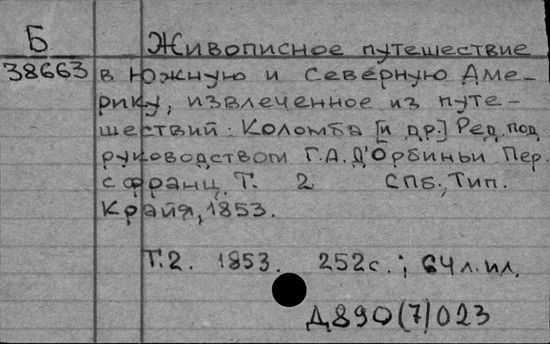 Б Живописное путешествие
38663 в Южную и Северную Аме-
рику, извлеченное из путе-
шествий: Коломба [и др.] Ред. под
руководством Г.А. Д'Орбиньи. Пер.
с франц. Т. 2 СПб., Тип.
Крайя, 1853.
Т.2. 1853. 252с.; 64л.ил.
Д890(7)023